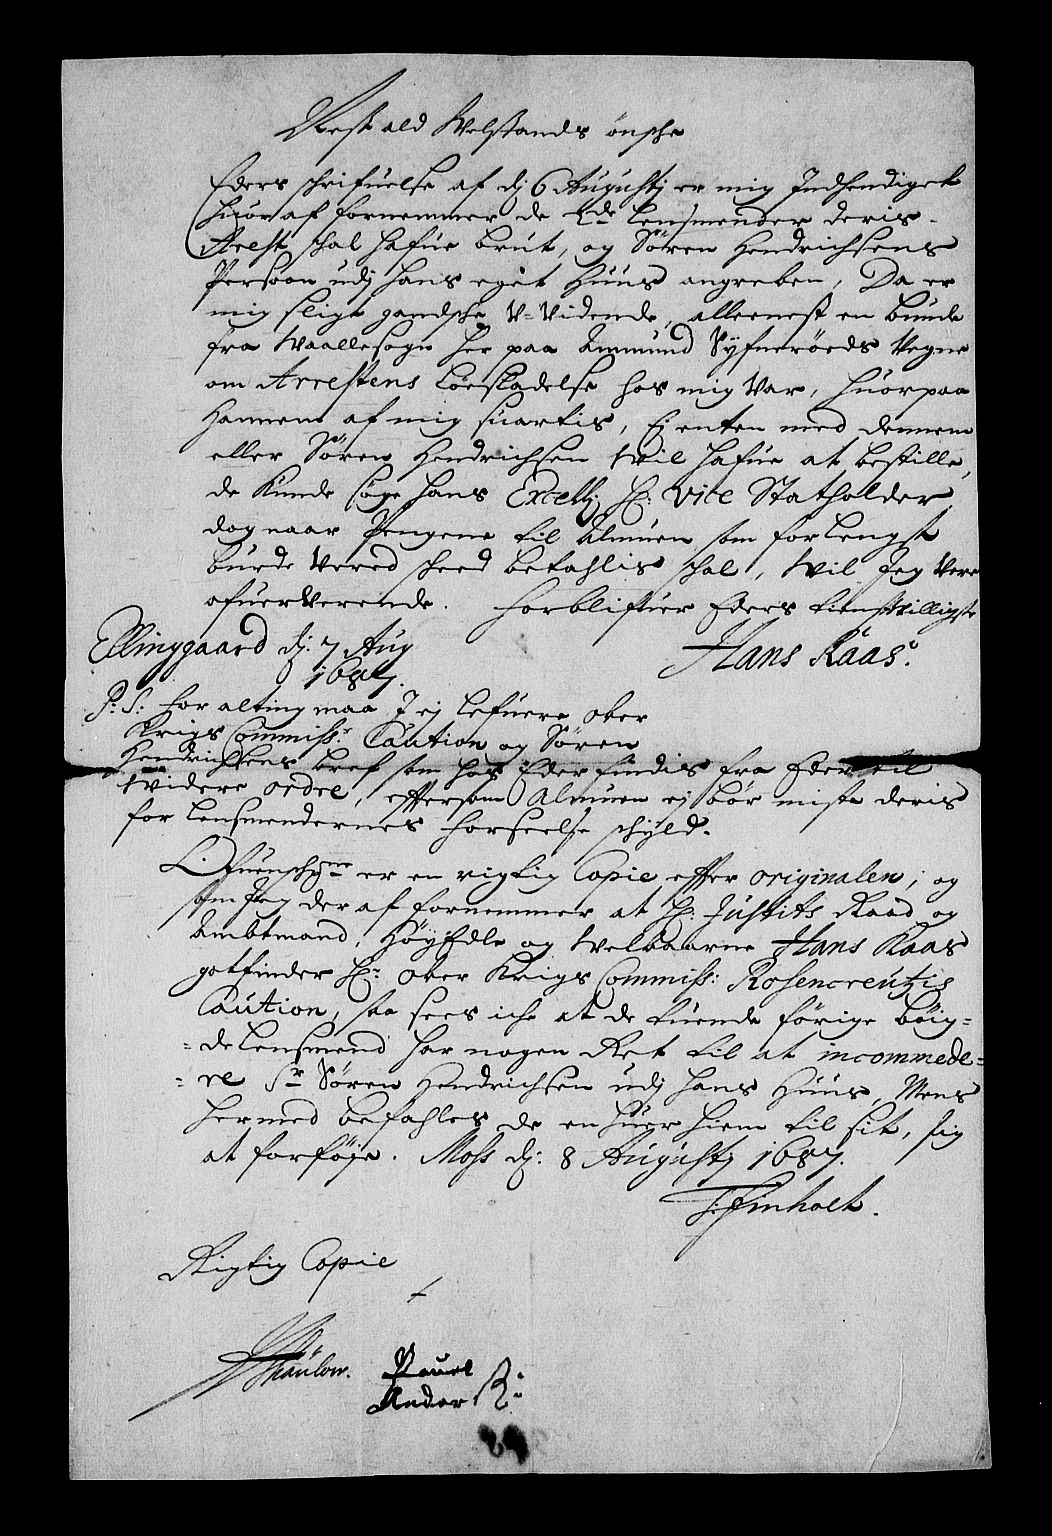 Nest ald Welstands önsche
Eders schrifuelse af dj 6 Augustj er mig Indhendiget
huor af fornemmer de 2de Lensmender deris
Arest schal hafue brut, og Sören Hendrichsens
Person udj hans eget Huus angreben, Da er
mig sligt gandsche V-Vidende, alleenest en bunde
fra Waallesogn her paa Ammund Syfneröeds Vegne
om Arrestens Löesladelse hos mig Var, huorpaa
Hannem af mig suartis, Ej enten med dennem
eller Sören Hendrichsen Wil hafue at bestille,
de kunde söge hans Excell: H: Vice Statholder
dog naar Pengene til Almuen som forlengst
burde Vered skeed betahlis schal, Wil Jeg Vere
ofuerVerende. Forblifuer Eders tienstVilligste
Ellinggaard dj: 7 Aug Hans Kaas.
1687.
P: S: for alting maa I ej Lefuere ober
Krigs Commiss: Caution og Sören
Hendrichsens bref som hos Eder findis fra Eder til
Widere ordre, effersom Almuen ej bör miste deris
for Lensmendernes forseelse schyld.
Ofuenschrne er en rigtig Copie effter originalen, og
som Jeg der af fornemmer at H: Justits Raad og
Ambtmand, HöyEdle og Welbaarne Hans Kaas
gotfinder Hr: ober Krigs Commiss: Rosencreutzis
Caution, saa sees iche at de tuende förige böig-
=delensmend har nogen Ret til at incommode=
=re Sr Sören Hendrichsen udj hans Huus, Mens
hermed befahles de en huer hiem til sit, sig
at forföje. Moss dj: 8 Augustj 1687.
T: Finholt.
Rigtig Copie
Thaulow. Pouel
Ander R: